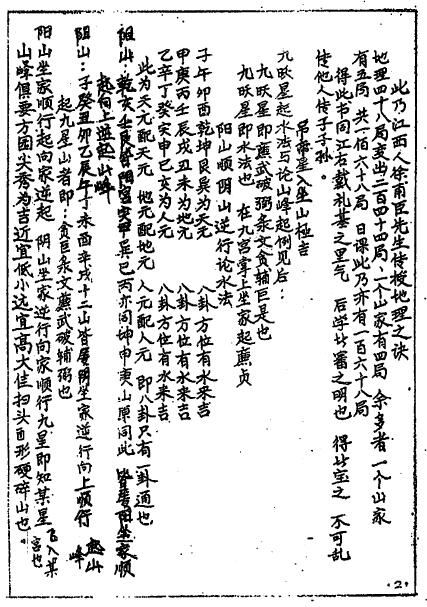 此乃江西人徐甫臣先生传授地理之诀
地理四十八局变出二百四十四局、一个山家有四局 余多者一个山家
有五局 共一佰六十八局 日课此乃亦有一百六十八局
得此书同江右戴礼基之里气 后学此審之明也 得此宝之 不可乱
传他人传子子孙。
吊 星入坐山極吉
九曜星起水法与论山峰起例见后：
九曜星即廉武破弼条文贪辅巨是也
九曜星即水法也 在九宫掌上坐家起廉贞
阳山顺阴山逆行论水法
子午卯酉乾坤艮巽为天元 八卦方位有水来吉
甲庚丙壬辰戌丑未为地元 八卦方位有水来吉
乙辛丁癸寅申巳亥为人元 八卦方位有水来吉
此为天元配天元 地元配地元 人元配人元 即八卦只有一卦通也
阳山：乾亥壬艮 寅甲巽巳丙亦同坤申庚山原同此 皆属阳坐家顺
起向上逆起山峰
阴山：子癸丑卯乙辰午丁未酉辛戌十二山皆属阴坐家逆行向上顺行 起山峰
起九星山者即：贪巨条文廉武破辅弼也
阳山坐家顺行起向家逆起 阴山坐家逆行向家顺行九星即知某星飞入某宫也
山峰俱要方园尖秀为吉近宜低小远宜高大佳 扫头 形硬碎山也。
·2·